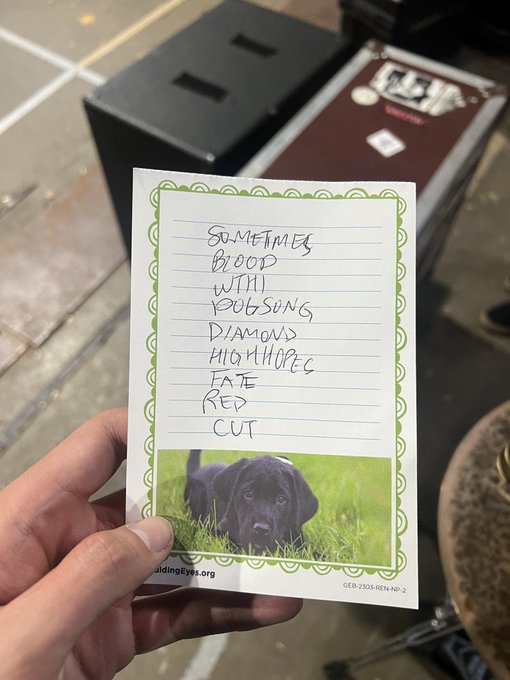 SOMETIMES
BLOOD
WTHI
DOGSONG
DIAMOND
HIGH HOPES
FATE
RED
CUT
idingEyes.org
GEB-2303-REN-NP-2